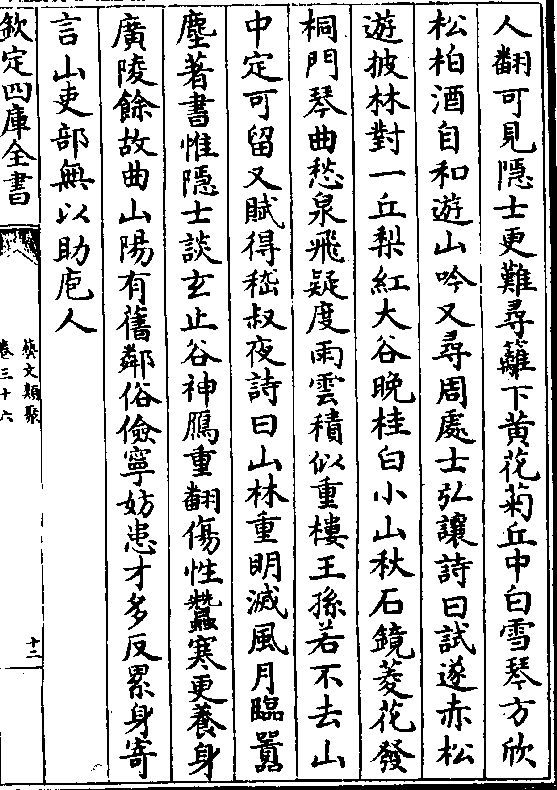 人翻可見隱士更難尋籬下黄花菊丘中白雪琴方欣
松柏酒自和遊山吟又尋周處士弘讓詩曰試遂赤松
遊披林對一丘梨紅大谷晚桂白小山秋石鏡菱花發
桐門琴曲愁泉飛疑度雨雲積似重樓王孫若不去山
中定可留又賦得嵇叔夜詩曰山林重明滅風月臨囂
塵著書惟隱士談玄止谷神鴈重翻傷性蠶寒更養身
廣陵餘故曲山陽有舊鄰俗儉寧妨患才多反累身寄
言山吏部無以助庖人
欽定四庫全書
藝文類聚
卷三十六
十二